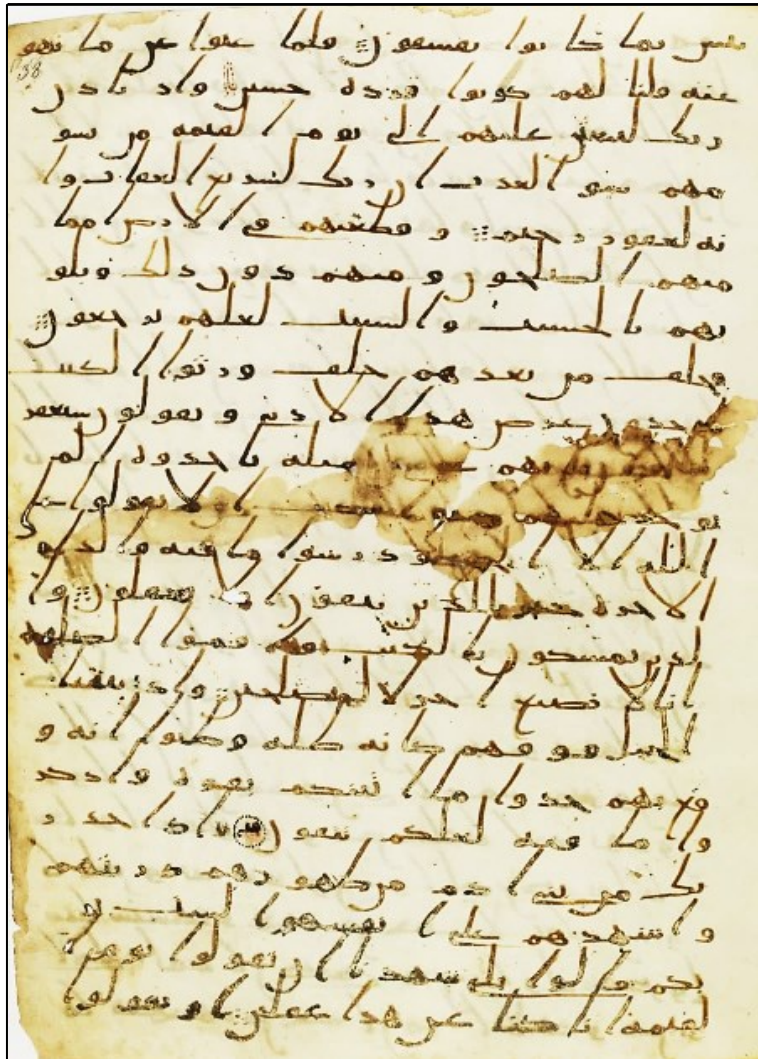 بيس بما كانوا يفسقون فلما عتوا عن ما نهو
38
عنه قلنا لهم كونوا قردة خسين واذ تاذن
ربك ليبعثن عليهم الى يوم القيمة من يسو
مهم سو العذب ان ربك لسريع العقاب وا
نه لغفور رحيم وقطعنهم في الارض امما
منهم الصلحون ومنهم دون ذلك وبلو
نهم بالحسنت والسيت لعلهم يرجعون
فخلف من بعدهم خلف ورثوا الكتب
ياخذون عرض هذا الادنى ويقولون سيغفر
ياتهم عرض مثله ياخذوه الم
يوخذ عليهم الا يقولوا على
الله الا الحق ودرسوا ما فيه والدر
الاخرة خير للذين يتقون افلا تعقلون وا
لذين يمسكون بالكتب واقموا الصلوة
انا لا نضيع اجر المصلحين واذ نتقنا
الجبل فوقهم كانه ظلة وظنوا انه و
قع بهم خذوا ما اتينكم بقوة واذكر
وا ما فيه لعلكم تتقون واذ اخذ ر
بك من بني ادم من ظهورهم ذريتهم
واشهدهم على انفسهم الست بر
بكم قالوا بلى شهدنا ان تقولوا يوم ا
لقيمة انا كنا عن هذا غفلين او تقولوا